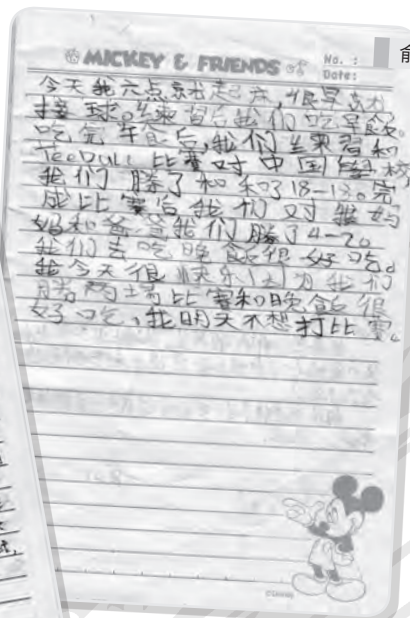 MICKEY & FRIENDS
No. :
Date:
今天我六点就起床,很早就
接球。结束过后我们吃早飯。
吃完午飯后,我们坐車和
TeeBall 比賽对中国學校
我们勝了和和了18-18。完
成比賽后我们对我妈
妈和爸爸我们勝了4-2。
我们去吃晚飯很好吃。
我今天很快乐因为我们
勝两場比賽和晚飯很
好吃,我明天不想打比賽。
©Disney
俞